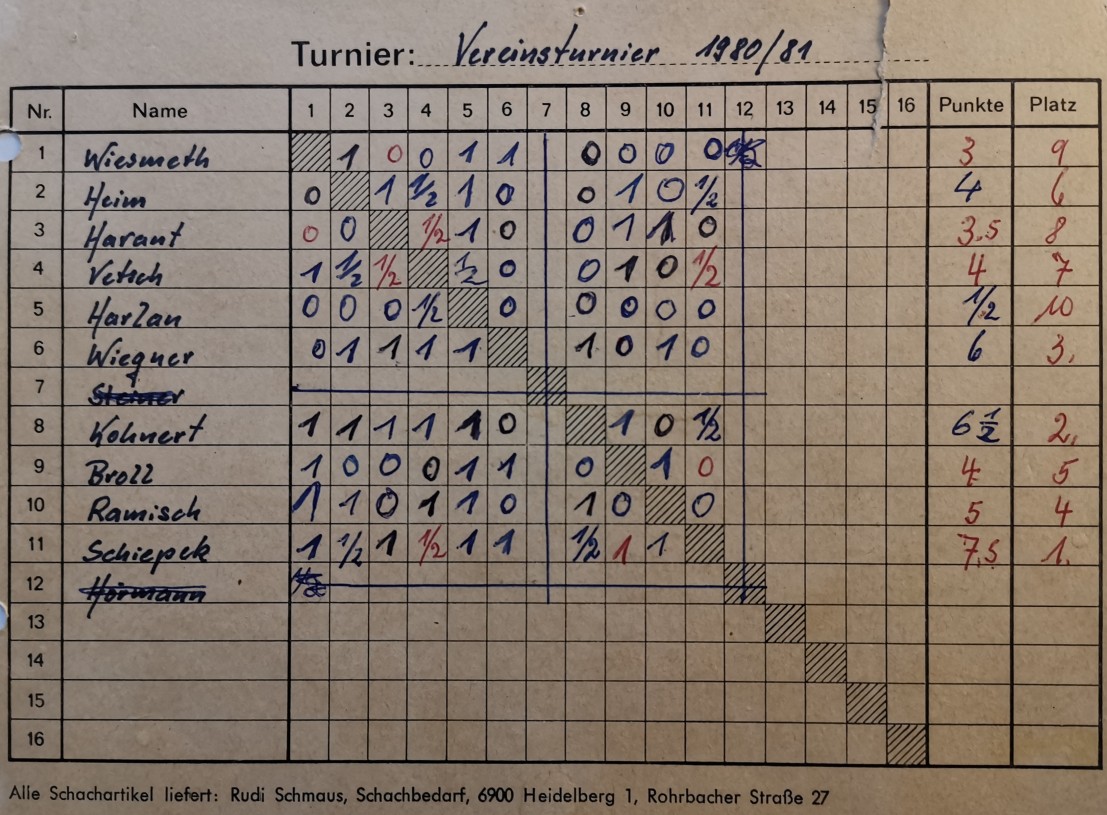 Turnier: Vereinsturnier 1980/81
Nr. Name 1 2 3 4 5 6 7 8 9 10 11 12 13 14 15 16 Punkte Platz
1 Wiesmeth 1 0 0 1 1 0 0 0 0 3 9
2 Heim 0 1 1/2 1 0 0 1 0 1/2 4 6
3 Harant 0 0 1/2 1 0 0 1 1 0 3.5 8
4 Vetsch 1 1/2 1/2 1/2 0 0 1 0 1/2 4 7
5 Harlan 0 0 0 1/2 0 0 0 0 0 1/2 10
6 Wiegner 0 1 1 1 1 1 0 1 0 6 3.
7 Steiner
8 Kohnert 1 1 1 1 1 0 1 0 1/2 6 1/2 2.
9 Broll 1 0 0 0 1 1 0 1 0 4 5
10 Ramisch 1 1 0 1 1 0 1 0 0 5 4
11 Schiepek 1 1/2 1 1/2 1 1 1/2 1 1 7.5 1.
12 Hörmann
13
14
15
16
Alle Schachartikel liefert: Rudi Schmaus, Schachbedarf, 6900 Heidelberg 1, Rohrbacher Straße 27